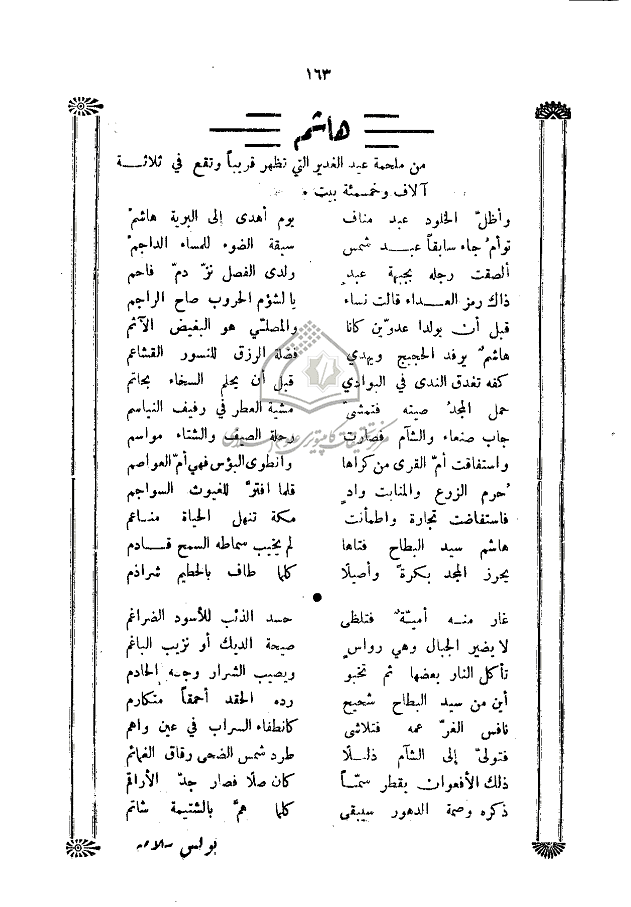 ١٦٣
هاشم
من ملحمة عيد الغدير التي تظهر قريباً وتقع في ثلاثة
آلاف وخمسئة بيت .
وأظلّ الخلود عبد مناف يوم أهدى إلى البرية هاشم
توأمٌ جاء سابقاً عبد شمس سبقة الضوء للمساء الداجم
ألصقت رجله بجبهة عبدٍ ولدى الفصل نزّ دمّ فاحم
ذاك رمز العداء قالت نساء يا لشؤم الحروب صاح الراجم
قبل أن يولدا عدوّين كانا والمصلتي هو البغيض الآثم
هاشمٌ يرفد الحجيج ويهدي فضلة الرزق للنسور القشاعم
كفه تغدق الندى في البوادي قبل أن يحلم السخاء بحاتم
حمل المجدُ صيته فتمشىّ مشية العطر في رفيف النياسم
جاب صنعاء والشآم فصارت رحلة الصيف والشتاء مواسم
واستفاقت أمّ القرى من كراها وانطوى البؤس فهي أمّ العواصم
حُرم الزرع والمنابت وادٍ قلما افترّ للغيوث السواجم
فاستفاضت تجارة واطمأنت مكة تنهل الحياة مناعم
هاشم سيد البطاح فتاها لم يخيب سماطه السمح قادم
يحرز المجد بكرةً وأصيلا كلما طاف بالحطيم شراذم
غار منه أميّةٌ فتلظى حسد الذئب للأسود الضراغم
لا يضير الجبال وهي رواسٍ صيحة الديك أو نزيب الباغم
تأكل النار بعضها ثم تخبو ويصيب الشرار وجه الحادم
أين من سيد البطاح شحيح رده الحقد أحمقاً متكارم
نافس الغرّ عمه فتلاشى كانطفاء السراب في عين واهم
فتولىّ إلى الشآم ذليلا طرد شمس الضحى رقاق الغمائم
ذلك الأفعوان يقطر سمّاً كان صلا فصار جدّ الأراقم
ذكره وصمة الدهور سيبقى كلما همّ بالشتيمة شاتم
بولس سلامه